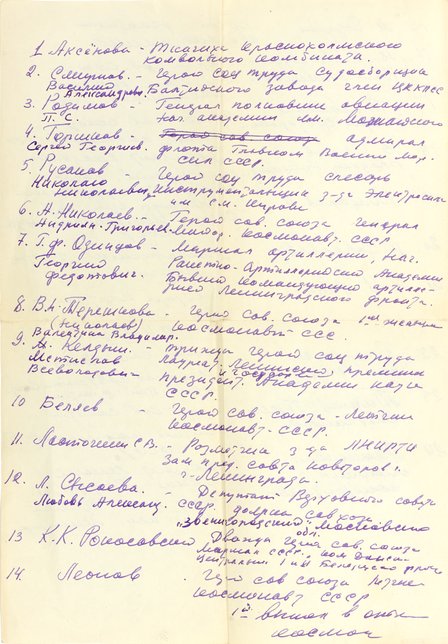 1. Аксёнова - Ткачиха Краснохолмского
комвольного комбината.
2. Смирнов. - Герой соц труда судосборщик
Василий Александров. Балтийского завода член ЦККПСС
3. Родимов - Генерал полковник авиации
П. С. нач. академии им. Можайского
4. Горшков - Герой сов. союза адмирал
Сергей Георгиев. флота Главком Военно мор.
сил СССР.
5. Русанов - Герой соц труда слесарь
Николаю Николаевич инструментальщик з-да Электросила
им с. м. Кирова
6. А. Николаев. - Герой сов. союза генерал
Андриян Григорьев. майор. космонавт. СССР
7. Г. Ф. Одинцов - Маршал артиллерии, нач.
Георгий Ракетно-Артиллерийской Академии
Федотович. Бывший командующий артилле-
рией Ленинградского фронта.
8. В. Н. Терешкова - Герой сов. союза 1ая женщина
(Николаев) космонавт ССС.
Валентина Владимир.
9. М. Келдыш. - трижды Герой соц труда
Мстислав Лауреат Ленинской премии
и госуд
Всеволодович президент. Академии наук
СССР.
10 Беляев - Герой сов. союза - летчик
космонавт. СССР.
11. С. В. - Разметчик з-да
Зам пред. совета новаторов г.
Ленинграда.
12. Л. Сысоева. - Депутат Верховного совета
Любовь Александ. ссср доярка совхоза
"Звенигородский" Московской
обл.
13 К. К. Рокосовский Дважды Герой сов. союза
Маршал СССР. ком
Центральн 1 и 2 Белорусск фронт
14. Леонов - Герой сов союза летчик
космонавт СССР
1й вышел в откр
космос